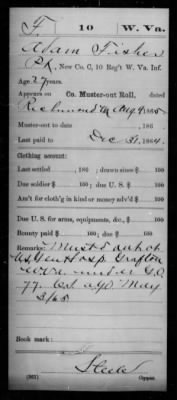 F. 10 W. Va.
Adam Fisher
Pvt, New Co. C, 10 Reg't W. Va. Inf.
Age 27 years.
Appears on Co. Muster-out Roll, dated
Richmond Va Aug 9, 1865
Muster-out to date , 186 .
Last paid to Dec 31, 1864.
Clothing account:
Last settled , 186 ; drawn since $ 100
Due soldier $ 100; due U. S. $ 100
Am't for cloth'g in kind or money adv'd $ 100
Due U. S. for arms, equipments, &c., $ 100
Bounty paid $ 100; due $ 100
Remarks: Must'd out of
US Gen Hosp Grafton
W Va under G.O.
77 A.G.O May
3/65
Book mark:
(361) Copyist.